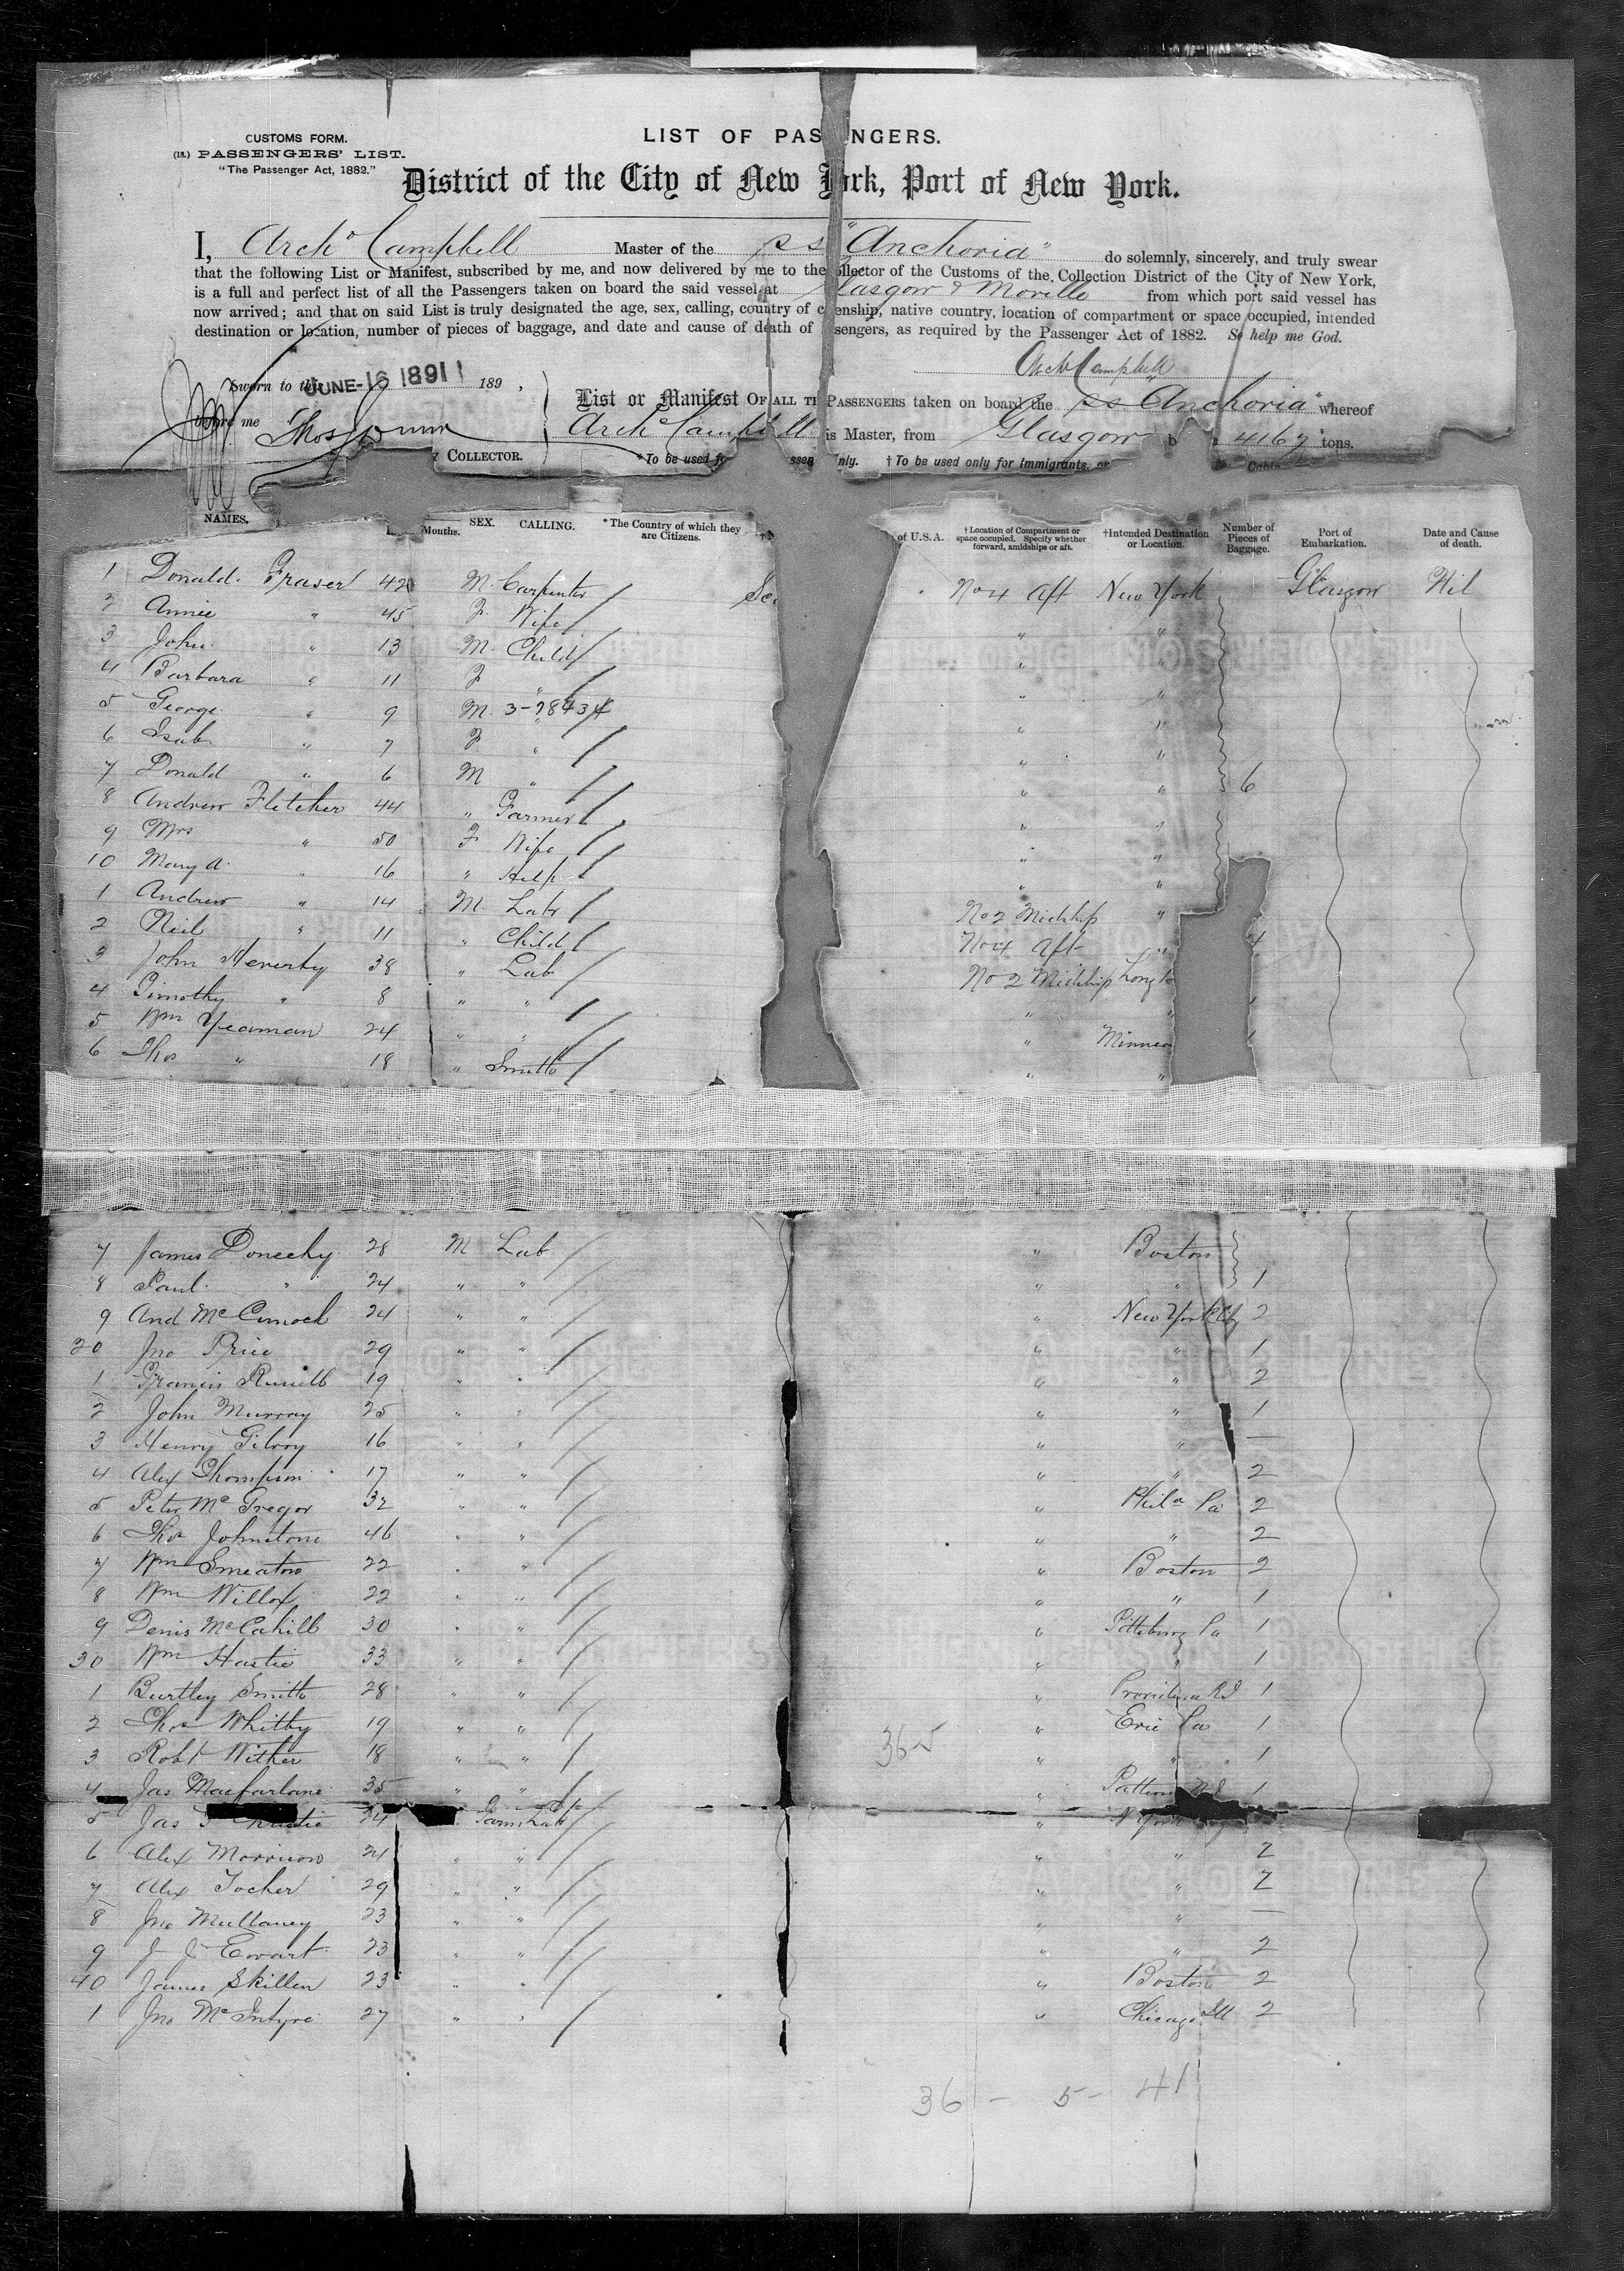 CUSTOMS FORM.
(18.) PASSENGERS' LIST.
"The Passenger Act, 1882."
LIST OF PAS NGERS.
District of the City of New York, Port of New York.
I, Archd Campbell Master of the ss "Anchoria" do solemnly, sincerely, and truly swear
that the following List or Manifest, subscribed by me, and now delivered by me to the Collector of the Customs of the Collection District of the City of New York,
is a full and perfect list of all the Passengers taken on board the said vessel at Glasgow & Moville from which port said vessel has
now arrived; and that on said List is truly designated the age, sex, calling, country of c enship, native country, location of compartment or space occupied, intended
destination or location, number of pieces of baggage, and date and cause of death of sengers, as required by the Passenger Act of 1882. So help me God.
Arch Campbell
Sworn to this JUNE 16 1891 189 ,
before me
COLLECTOR.
List or Manifest OF ALL THE PASSENGERS taken on board the ss "Anchoria" whereof
Archd Campbell is Master, from Glasgow b 4167 tons.
*To be used f ssen nly. †To be used only for immigrants, or Cabin
NAMES. Months. SEX. CALLING. *The Country of which they are Citizens. of U.S.A. †Location of Compartment or space occupied. Specify whether forward, amidships or aft. †Intended Destination or Location. Number of Pieces of Baggage. Port of Embarkation. Date and Cause of death.
1 Donald Fraser 42 M. Carpenter Sc No 4 Aft New York Glasgow Nil
2 Annie " 45 F. Wife " "
3 John " 13 M. Child " "
4 Barbara " 11 F " " "
5 George " 9 M. 3-28434 " " "
6 Isab. " 7 F " " "
7 Donald " 6 M " " " 6
8 Andrew Fletcher 44 " Farmer " "
9 Mrs " 50 F Wife " "
10 Mary A. " 16 " Help " "
1 Andrew " 14 M. Labr No 2 Midship "
2 Neil " 11 " Child No 4 Aft " 4
3 John Heverty 38 " Lab No 2 Midship Long
4 Timothy " 8 " " " " 1
5 Wm Yeaman 24 " " " Minnea 1
6 Thos " 18 " Smith " "
7 James Doneehy 28 M Lab " Boston
8 Paul " 24 " " " " 1
9 And McCunoch 24 " " " New York City 2
20 Jno Price 29 " " " " 1
1 Francis Russell 19 " " " " 2
2 John Murray 25 " " " " 1
3 Henry Gilroy 16 " " " " —
4 Alex Thompson 17 " " " " 2
5 Peter McGregor 32 " " " Phila Pa 2
6 Thos Johnstone 46 " " " " 2
7 Wm Smeaton 22 " " " Boston 2
8 Wm Willox 22 " " " " 1
9 Denis McCahill 30 " " " Pittsburg Pa 1
30 Wm Hastie 33 " " " " 1
1 Bartley Smith 28 " " " Providence RI 1
2 Thos Whitby 19 " " " Erie Pa 1
36 5
3 Robt Wither 18 " " " " 1
4 Jas Macfarlane 35 " " " 1
5 Jas 24 Farm Lab " N York
6 Alex Morrison 21 " " " " 2
7 Alex Tocher 29 " " " " 2
8 Jno Mullaney 23 " " " " —
9 J J Ewart 23 " " " " 2
40 James Skillen 23 " " " Boston 2
1 Jno McIntyre 27 " " " Chicago Ill 2
36 - 5 - 41